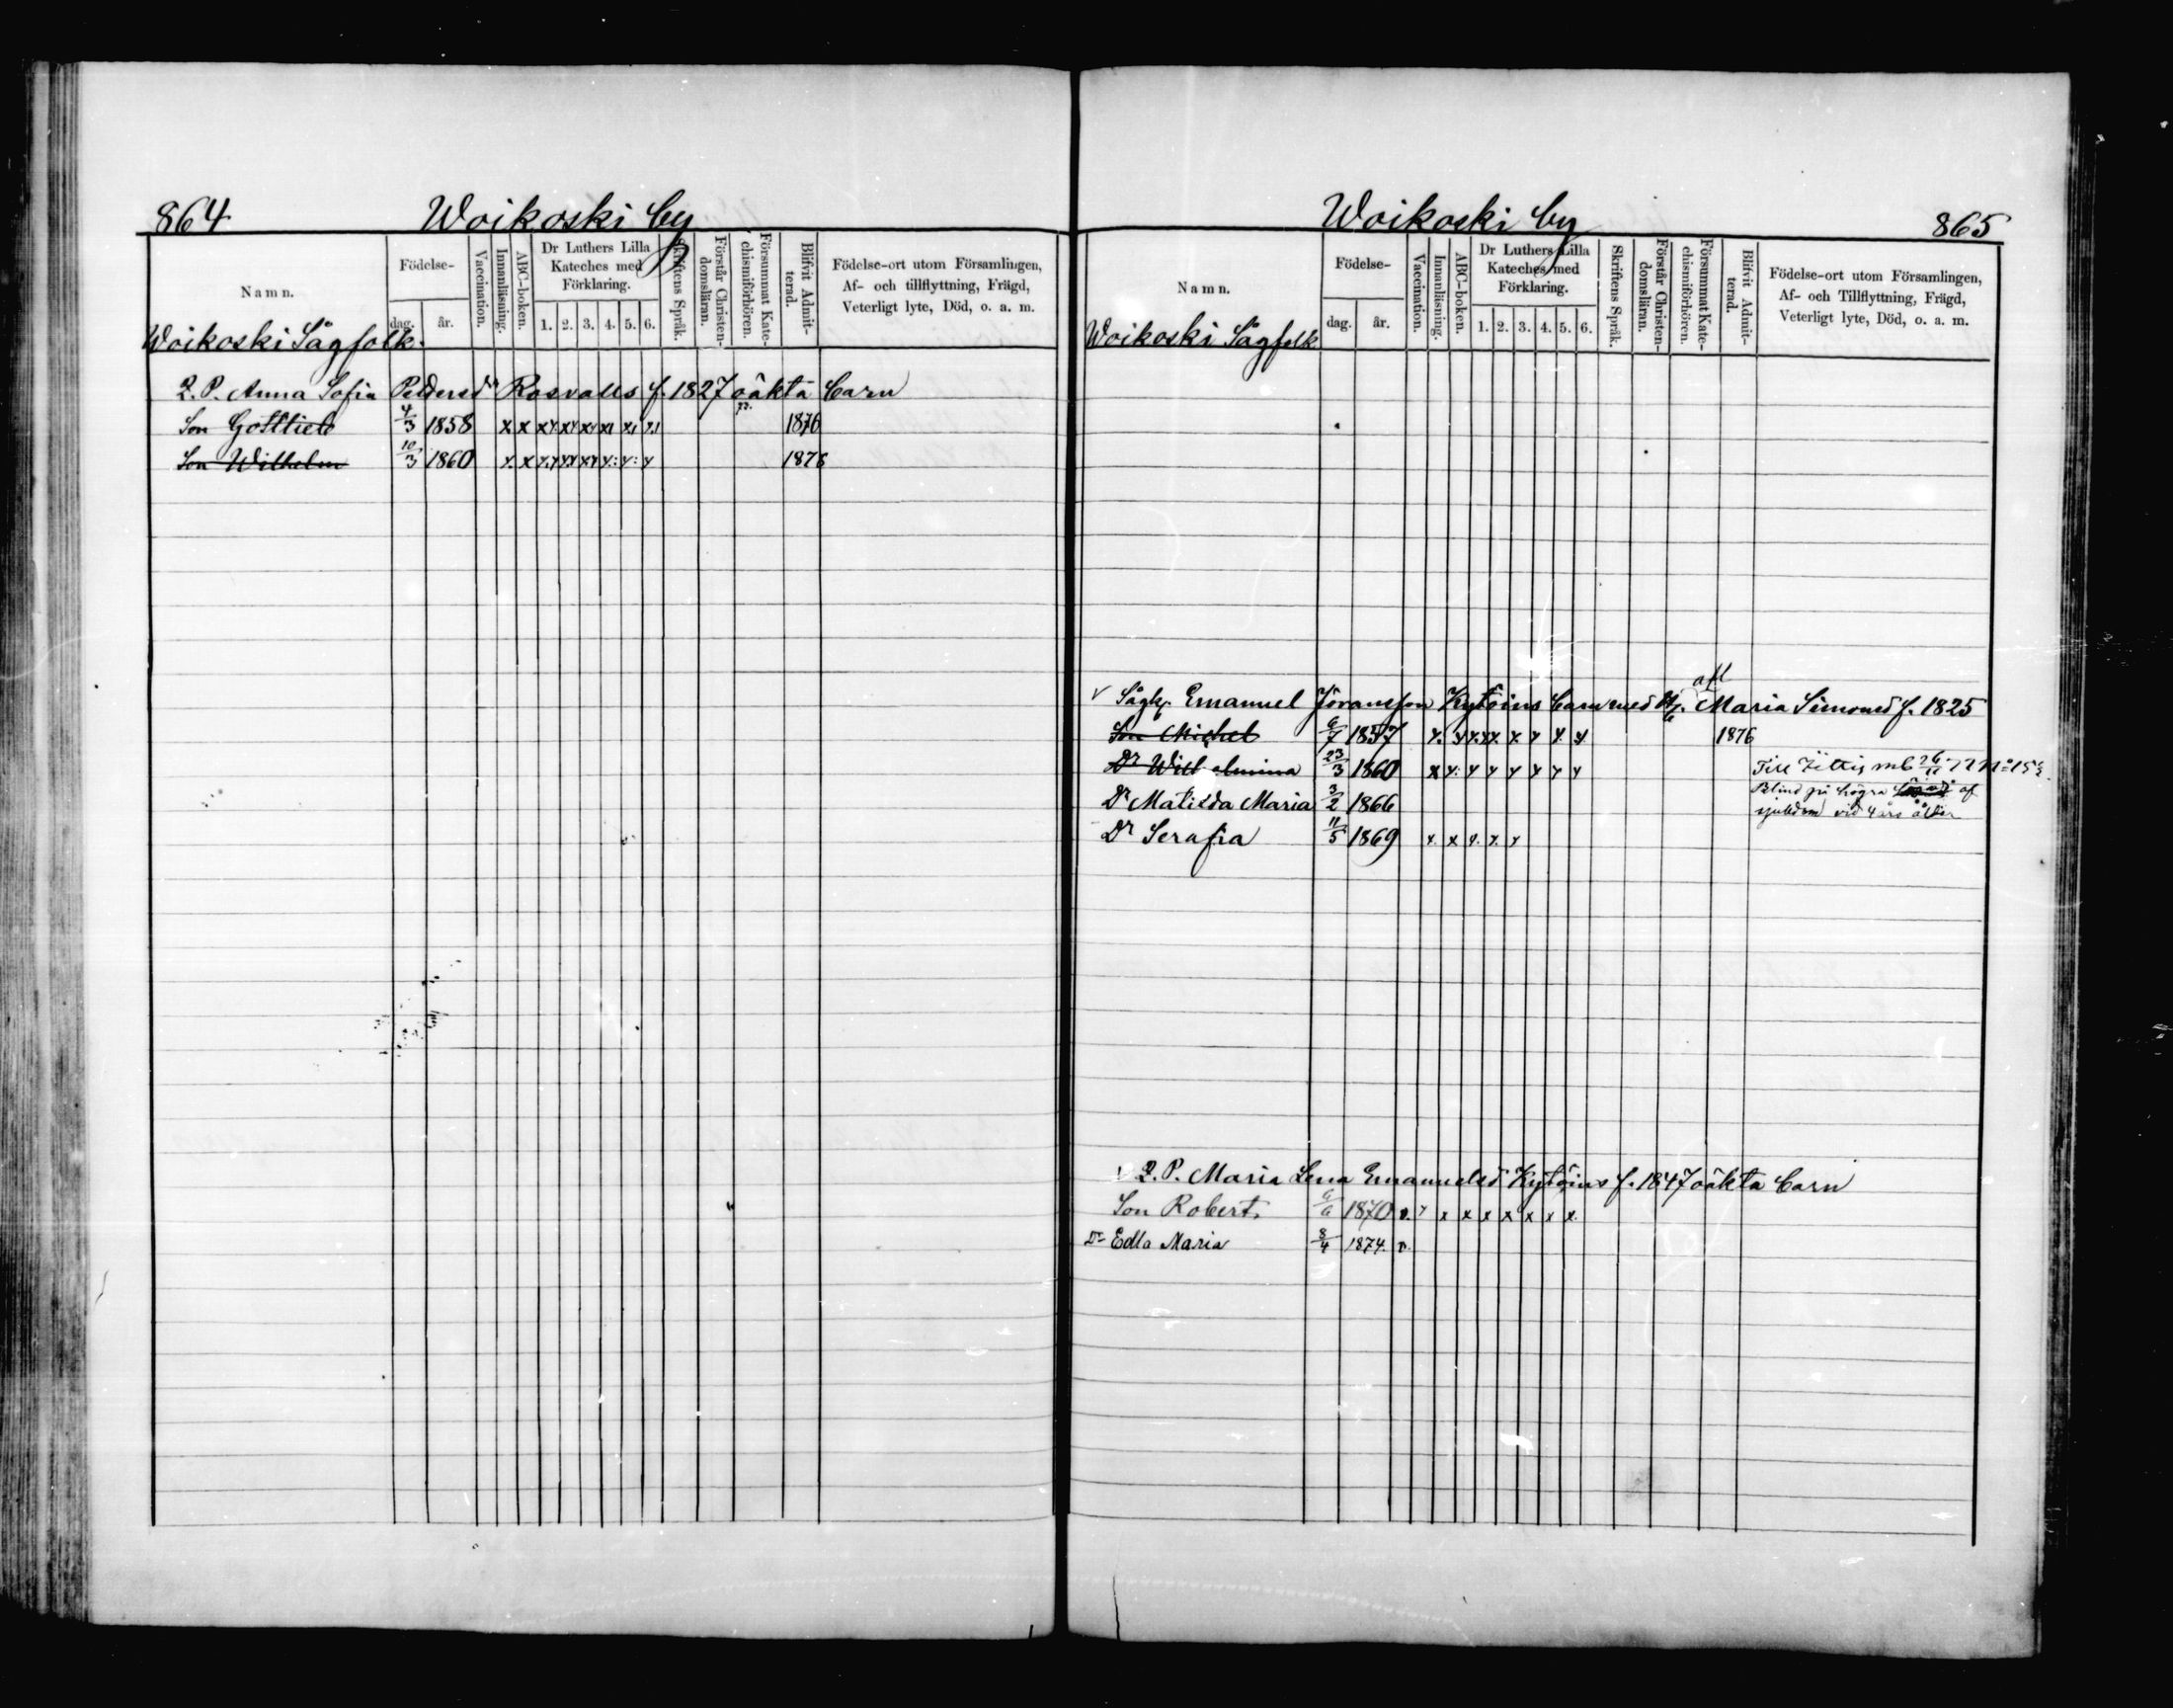 864 Woikoski by
Namn.
Födelse-
dag. år.
Vaccination.
Innanläsning.
ABC-boken.
Dr Luthers Lilla
Kateches med
Förklaring.
1. 2. 3. 4. 5. 6.
Skriftens Språk.
Förstår Christen-
domsläran.
Försummat Kate-
chismiförhören.
Blifvit Admit-
terad.
Födelse-ort utom Församlingen,
Af- och tillflyttning, Frägd,
Veterligt lyte, Död, o. a. m.
Woikoski Sågfolk.
Q. P. Anna Sofia Pedersdr Rosvalls f. 1827 oäkta barn
Son Gottlieb 4/3 1858 x x x x x x x x 1876
Son Wilhelm 10/3 1860 x x x x x x x x 1876
Woikoski by 865
Namn.
Födelse-
dag. år.
Vaccination.
Innanläsning.
ABC-boken.
Dr Luthers Lilla
Kateches med
Förklaring.
1. 2. 3. 4. 5. 6.
Skriftens Språk.
Förstår Christen-
domsläran.
Försummat Kate-
chismiförhören.
Blifvit Admit-
terad.
Födelse-ort utom Församlingen,
Af- och Tillflyttning, Frägd,
Veterligt lyte, Död, o. a. m.
Woikoski Sågfolk
afl
v Sågk. Emanuel Jöransson Kytöins barn med H. Maria Simonsd f. 1825
Son Michel 6/7 1857 x x x x x x x x 1876
Dr Wilhelmina 23/3 1860 x x x x x x x x Till Jittis mb 26/11
Dr Matilda Maria 3/2 1866 Blind på högra af
sjukdom vid 4 års ålder
Dr Serafia 11/5 1869 x x x x x
v Q. P. Maria Lena Emanuelsd Kytöins f. 1847 oäkta barn
Son Robert 6/6 1870 v. x x x x x x x x
Dr Edla Maria 8/4 1874. v.